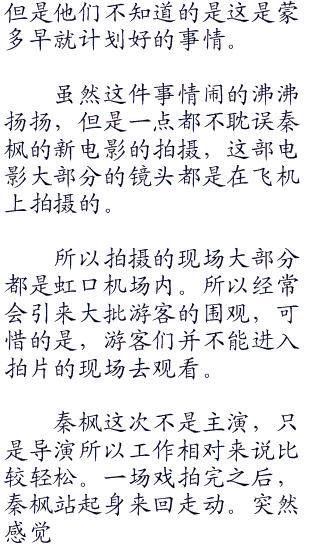 但是他们不知道的是这是蒙
多早就计划好的事情。
虽然这件事情闹的沸沸
扬扬，但是一点都不耽误秦
枫的新电影的拍摄，这部电
影大部分的镜头都是在飞机
上拍摄的。
所以拍摄的现场大部分
都是虹口机场内。所以经常
会引来大批游客的围观，可
惜的是，游客们并不能进入
拍片的现场去观看。
秦枫这次不是主演，只
是导演所以工作相对来说比
较轻松。一场戏拍完之后，
秦枫站起身来回走动。突然
感觉